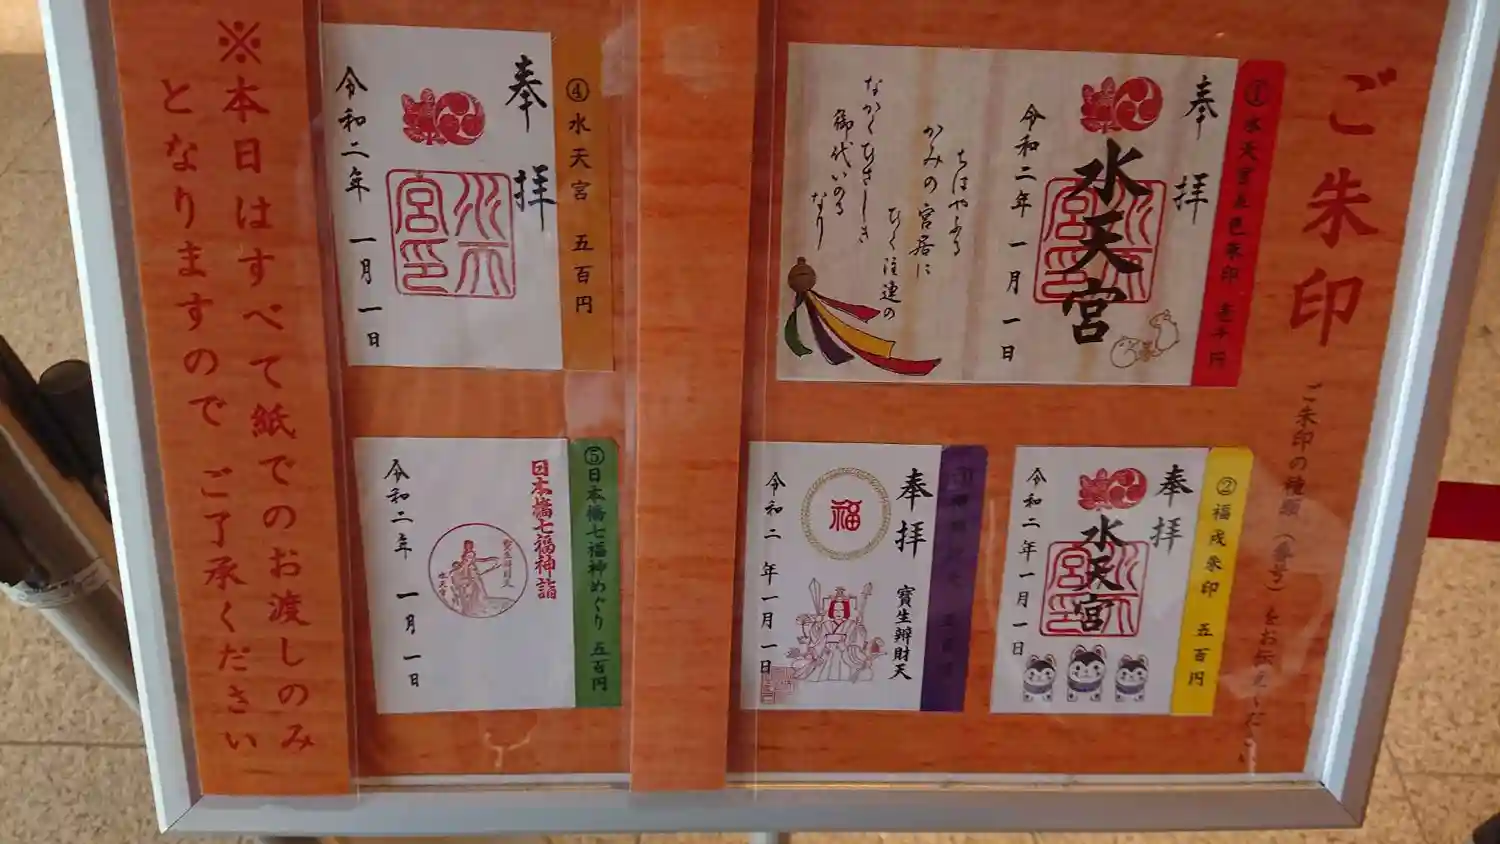 ご朱印
ご朱印の種類（番号）をお伝えください
① 水天宮五色朱印 壱千円
奉拝
水天宮
令和二年 一月 一日
ちはやふる
かみの宮居に
ひく注連の
なかくひさしき
御代いのる
なり
② 福戌朱印 五百円
奉拝
水天宮
令和二年一月一日
五百円
奉拝
福
寶生辨財天
令和二年一月一日
④ 水天宮 五百円
奉拝
水天宮印
令和二年 一月 一日
⑤ 日本橋七福神めぐり 五百円
日本橋七福神詣
寶生辨財天
水天宮
令和二年 一月 一日
※本日はすべて紙でのお渡しのみ
となりますので ご了承ください